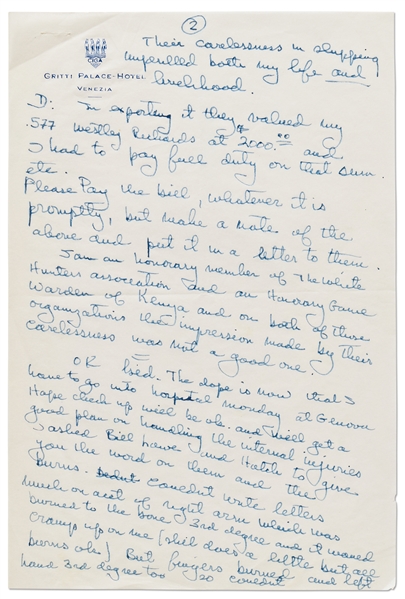 2
CIGA
GRITTI PALACE-HOTEL
VENEZIA
Their carelessness in shipping
imperilled both my life and
livelihood.
D: In exporting it they valued my
.577 Westley Richards at 2000.00 and
I had to pay full duty on that sum
etc.
Please Pay the bill, whatever it is
promptly, but make a note of the
above and put it in a letter to them.
I am an honorary member of The White
Hunters association and an Honorary Game
Warden of Kenya and on both of those
organizations the impression made by their
carelessness was not a good one.
OK. The dope is now that I
have to go into hospital monday at Genova
Hope check up will be ok. and will get a
good plan on handling the internal injuries
I asked Bill Lowe and Hatch to give
you the word on them and the
burns. couldnt write letters
much on acct of right arm which was
burned to the bone 3rd degree and it
cramp up on me (still does a little but all
burns ok) But fingers burned and left
hand 3rd degree too so couldnt